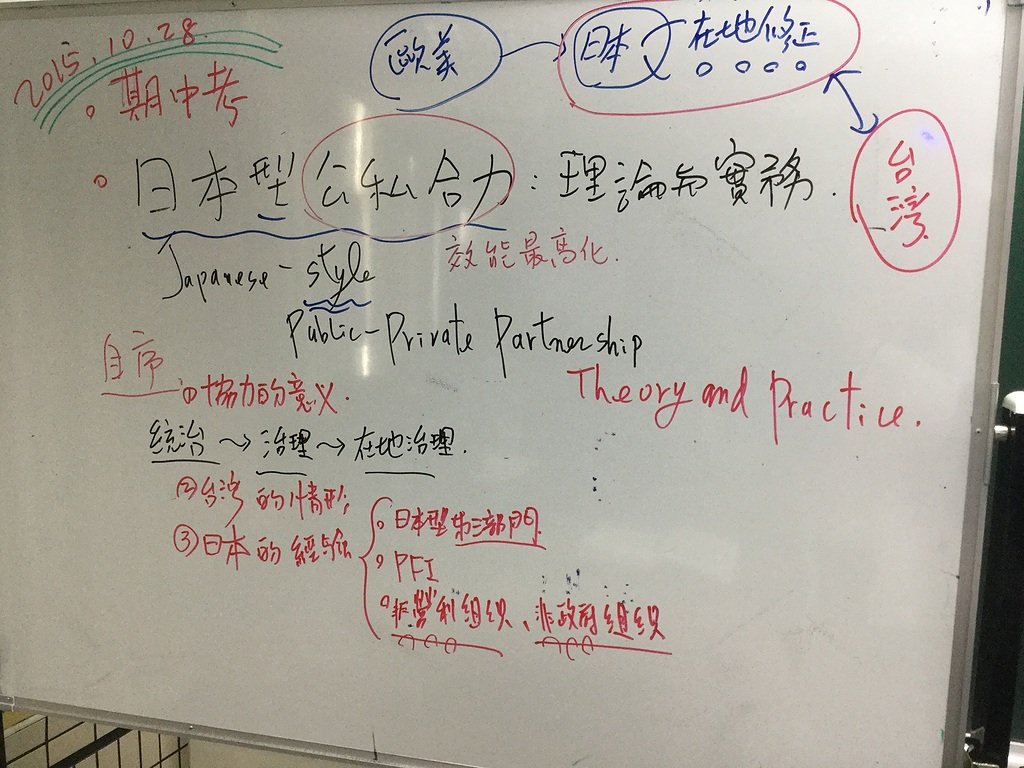 2015.10.28.
期中考
歐美 日本 在地修正
台灣
日本型公私合力：理論與實務.
Japanese-style
效能最高化.
Public-Private Partnership
Theory and Practice.
自序
①協力的意义.
統治→治理→在地治理.
②台灣的情形
③日本的經驗
日本型第三部門
PFI
非營利組织、非政府組织